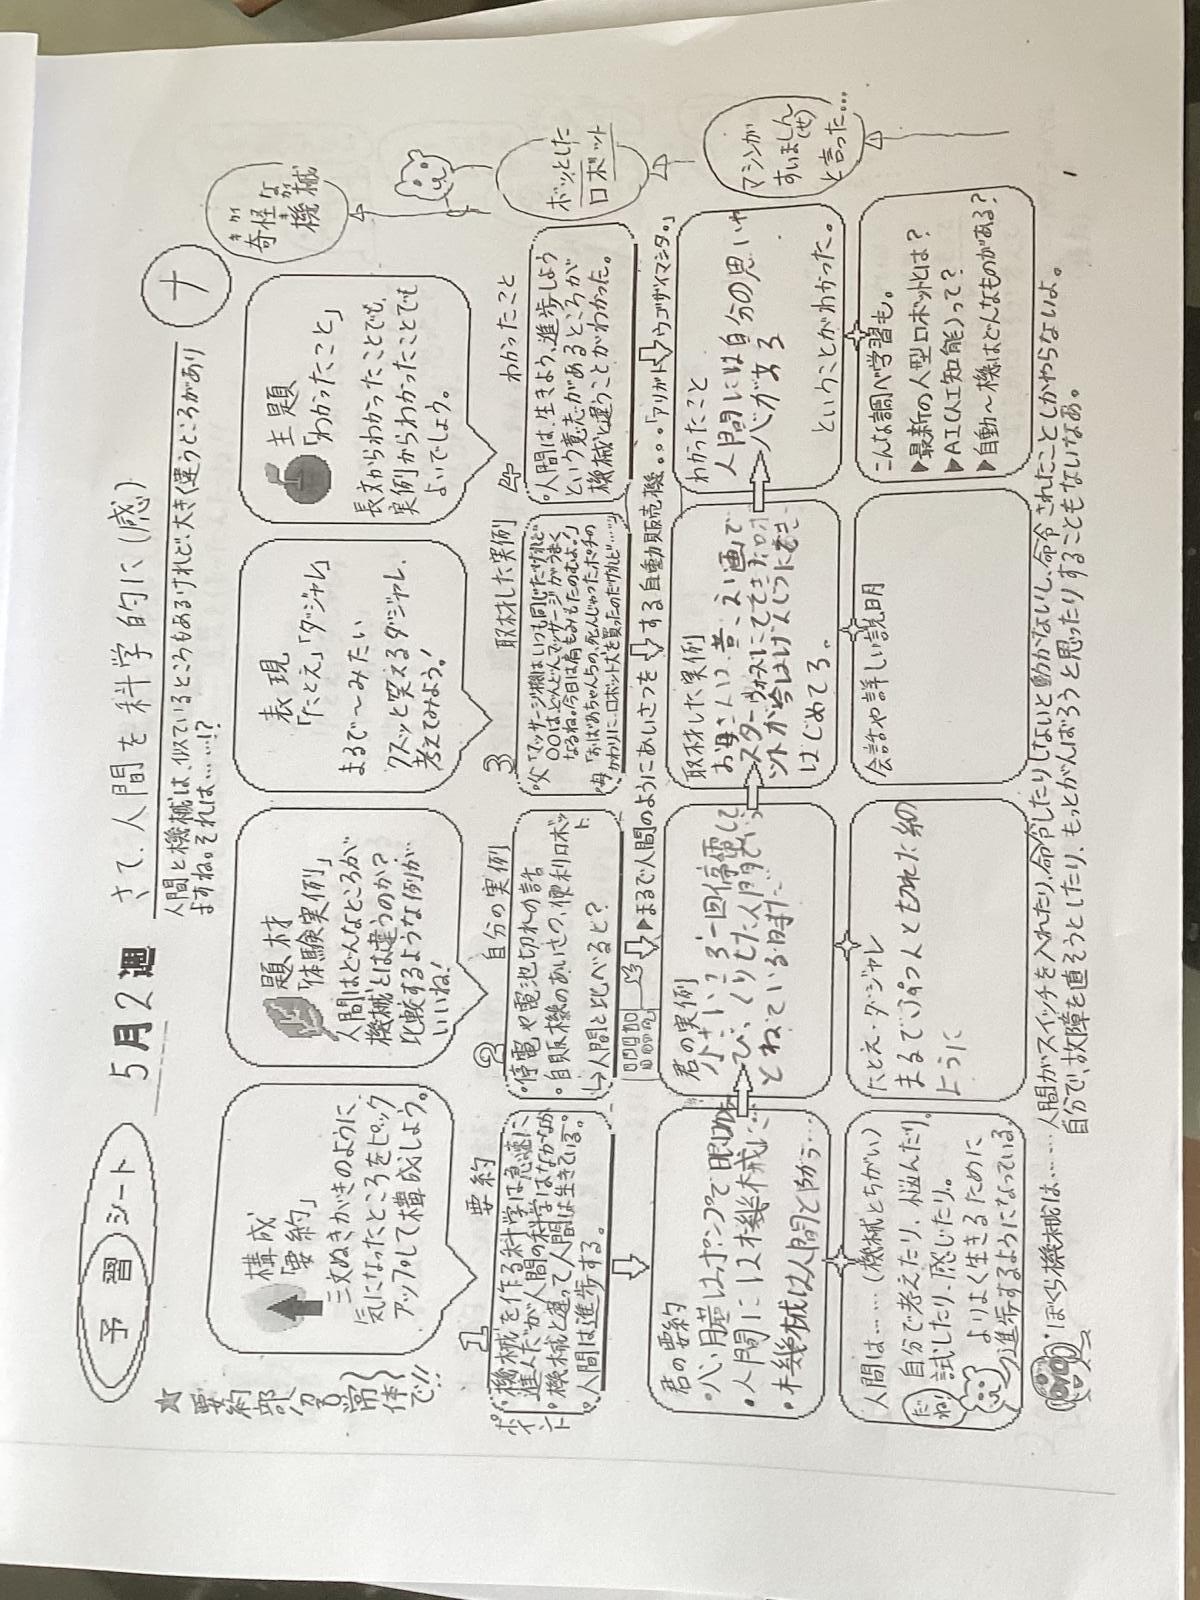 予習シート
5月2週
さて、人間を科学的に(感)
ナ
人間と機械は、似ているところもあるけれど、大きく違うところがあり
ますね。それは……!?
奇怪な
キカイ
機械
★要約部分は常体で!!
構成
「要約」
三文ぬきがきのように
気になったところをピック
アップして構成しよう。
題材
「体験実例」
人間はどんなところが
機械とは違うのか?
比較するような例が
いいね!
表現
「たとえ」「ダジャレ」
まるで〜みたい
クスッと笑えるダジャレ、
考えてみよう!
主題
「わかったこと」
長文からわかったことでも、
実例からわかったことでも
よいでしょう。
1 要約
ポイント
・機械を作る科学は急速に
進んだが人間の科学はなかなか
・機械と違って人間は生きている。
・人間は進歩する。
2 自分の実例
・停電や電池切れの話
・自販機のあいさつ、便利ロボット
→人間と比べるど?
3 取材した実例
父「マッサージ機はいつも同じだけれど
〇〇はどんどんマッサージがうまく
なるね。今日は肩もみもたのむよ。」
母「おばあちゃんちの、死んじゃったポチの
かわりに、ロボット犬を買ったのだけれど……
4 わかったこと
・人間は、生きよう、進歩しよう
という意志があるところが
機械と違うことがわかった。
ボッとした
ロボット
▶まるで人間のようにあいさつをする自動販売機。。。「アリガトウゴザイマシタ。」
マシンが
すいましぇん
(せ)
と言った…
君の要約
・心臓はポンプで眼は
・人間には機械に…
・機械は人間とちがう……
君の実例
小さいころ一回停電して
び、くりした人間で
とねている時た
取材した実例
お母さんは、昔、えい画で
スターウォーズにでてきたロボ
ットが今はげんじつにうごき
はじめてる。
わかったこと
人間には自分の思いや
心がある
ということがわかった。
人間は……(機械とちがい)
自分で考えたり、悩んだり、
試したり、感じたり。
よりよく生きるために
進歩するようになっている。
だね
たとえ・ダジャレ
まるでぷつんと切れた糸の
ように
会話や詳しい説明
こんな調べ学習も。
▶最新の人型ロボットとは?
▶AI(人工知能)って?
▶自動〜機はどんなものがある?
ぼくら機械は……人間がスイッチを入れたり、命令したりしないと動かないし、命令されたことしかやらないよ。
自分で、故障を直そうとしたり、もっとがんばろうと思ったりすることもないなあ。